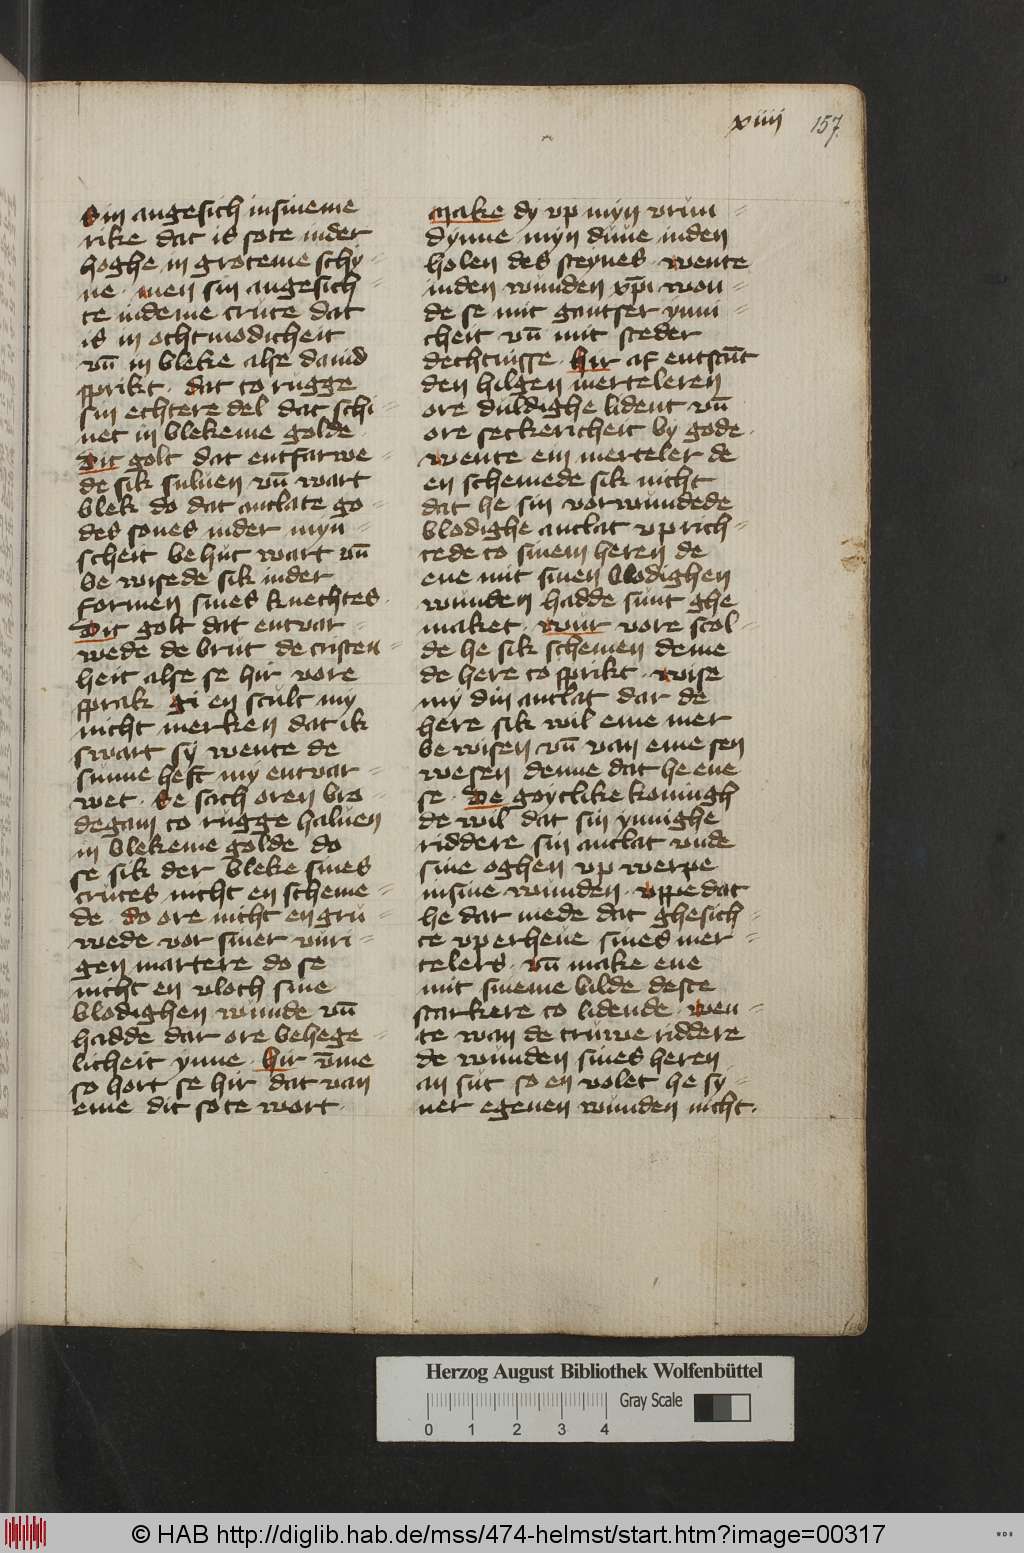 xiiij 157.
Sin angesich insineme
rike dat is sote inder
hoghe in groteme schy=
ne · men sin angesich=
te indeme cruce dat
is in othmodicheit
vn̄ in bleke alse dauid
sprikt · dat to rugge
sin echtere del dat schi=
net in blekeme golde
Dit golt dat entfarwe=
de sik suluen vn̄ wart
blek do dat antlate go=
des sones inder myn=
scheit be hut wart vn̄
be wisede sik inder
formen sines knechtes ·
Dit golt dat entvar=
wede de brut de cristen=
heit alse se hir vore
sprak gi en scult my
nicht merken dat ik
swart sy wente de
sunne heft my entvar=
wet · Se sach oren bro=
degam to rugge haluen
in blekeme golde do
se sik der bleke sines
cruces nicht en scheme=
de · do ore nicht en gru=
wede vor siner vuri=
gen martere do se
nicht en vloch sine
blodighen wunde vn̄
hadde dar ore behege=
licheit ynne · Hir v̄me
so hort se hir dat van
eme dit sote wort ·
Make dy vp myn vrun=
dynne myn duue inden
holen des steynes · wente
inden wunden xp̄i won=
de se mit gantser ynni=
cheit vn̄ mit steder
dechtnisse · Hir af entstūt
den hilgen merteleren
ore duldighe lident vn̄
ore seckericheit by gode ·
wente ein merteler de
en schemede sik nicht
dat he sin vorwundede
blodighe antlat vprich=
tede to sinem heren de
ene mit sinen blodighen
wunden hadde sunt ghe
maket · wur vore scol=
de he sik schemen deme
de here to sprikt · wise
my din antlat dar de
here sik wil eme mer
be wisen vn̄ van eme sen
wesen denne dat he ene
se · De goytlike koningh
de wil dat sin ynnighe
riddere sin antlat vnde
sine oghen vp werpe
insine wunden · vppe dat
he dar mede dat ghesich=
te vperheue sines mer=
telers · vn̄ make ene
mit sineme bilde deste
starkere to lidende · wen=
te wan de truwe riddere
de wunden sines heren
an sut so en volet he sy=
ner egenen wunden nicht ·
Herzog August Bibliothek Wolfenbüttel
Gray Scale
0 1 2 3 4
© HAB http://diglib.hab.de/mss/474-helmst/start.htm?image=00317